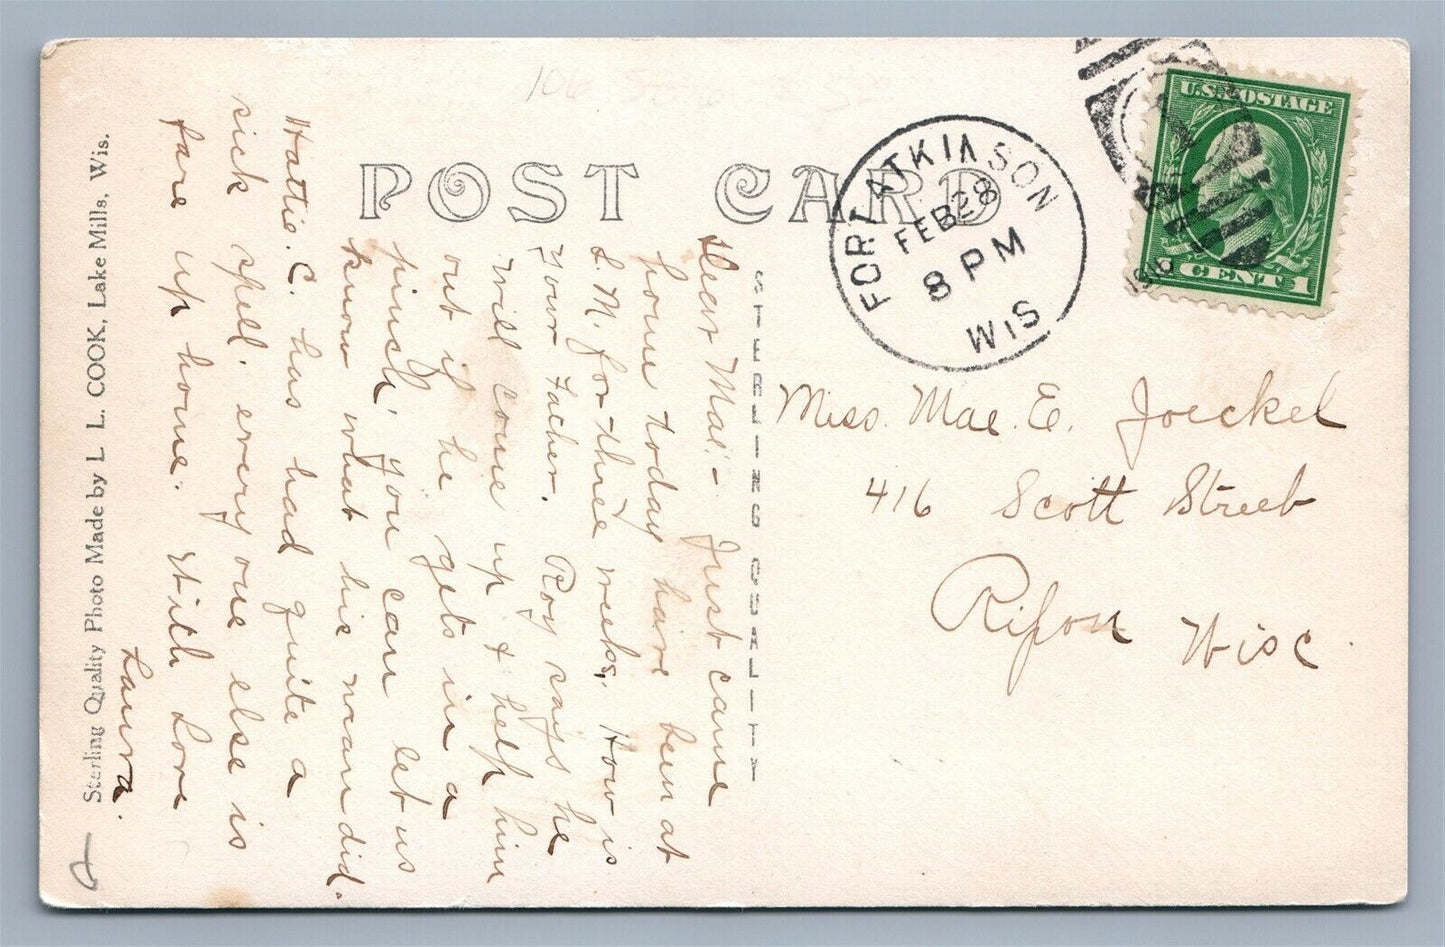 POST CARD
FORT ATKINSON
FEB 28
8 PM
WIS
U.S. POSTAGE
1 CENT 1
STERLING QUALITY
Sterling Quality Photo Made by L. L. COOK, Lake Mills, Wis.
Miss. Mae. E. Joeckel
416 Scott Street
Ripon Wisc.
Dear Mae:- Just came
home today have been at
L. M. for three weeks. How is
your Father. Roy says he
will come up & help him
out if he gets in a
pinch, you can let us
know what his man did.
Hattie. C. has had quite a
sick spell, every one else is
fare up home. With Love
Laura.